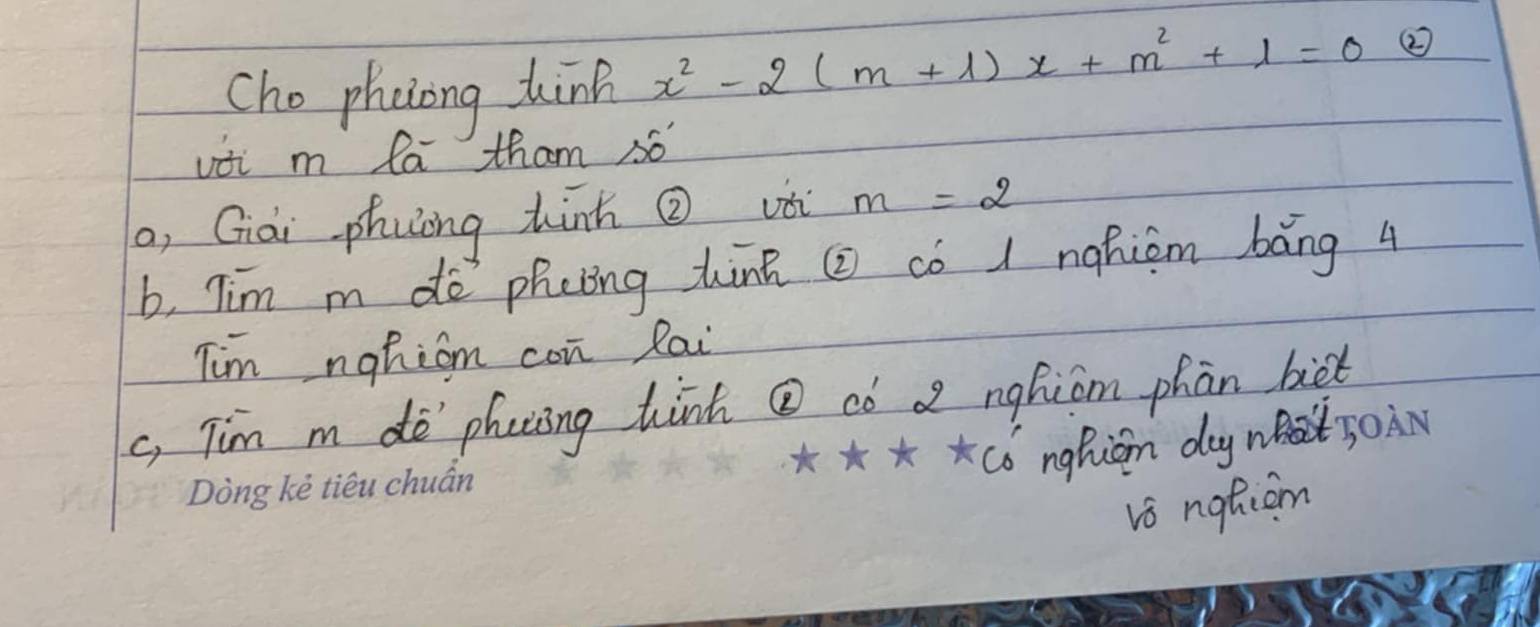 Cho phương trình x² - 2(m + 1)x + m² + 1 = 0 ②
với m là tham số
a, Giải phương trình ② với m = 2
b, Tìm m để phương trình ② có 1 nghiệm bằng 4
Tìm nghiệm còn lại
c, Tìm m để phương trình ② có 2 nghiệm phân biệt
có nghiệm duy nhất, TOÀN
Dòng kẻ tiêu chuẩn ★ ★ ★ ★
vô nghiệm